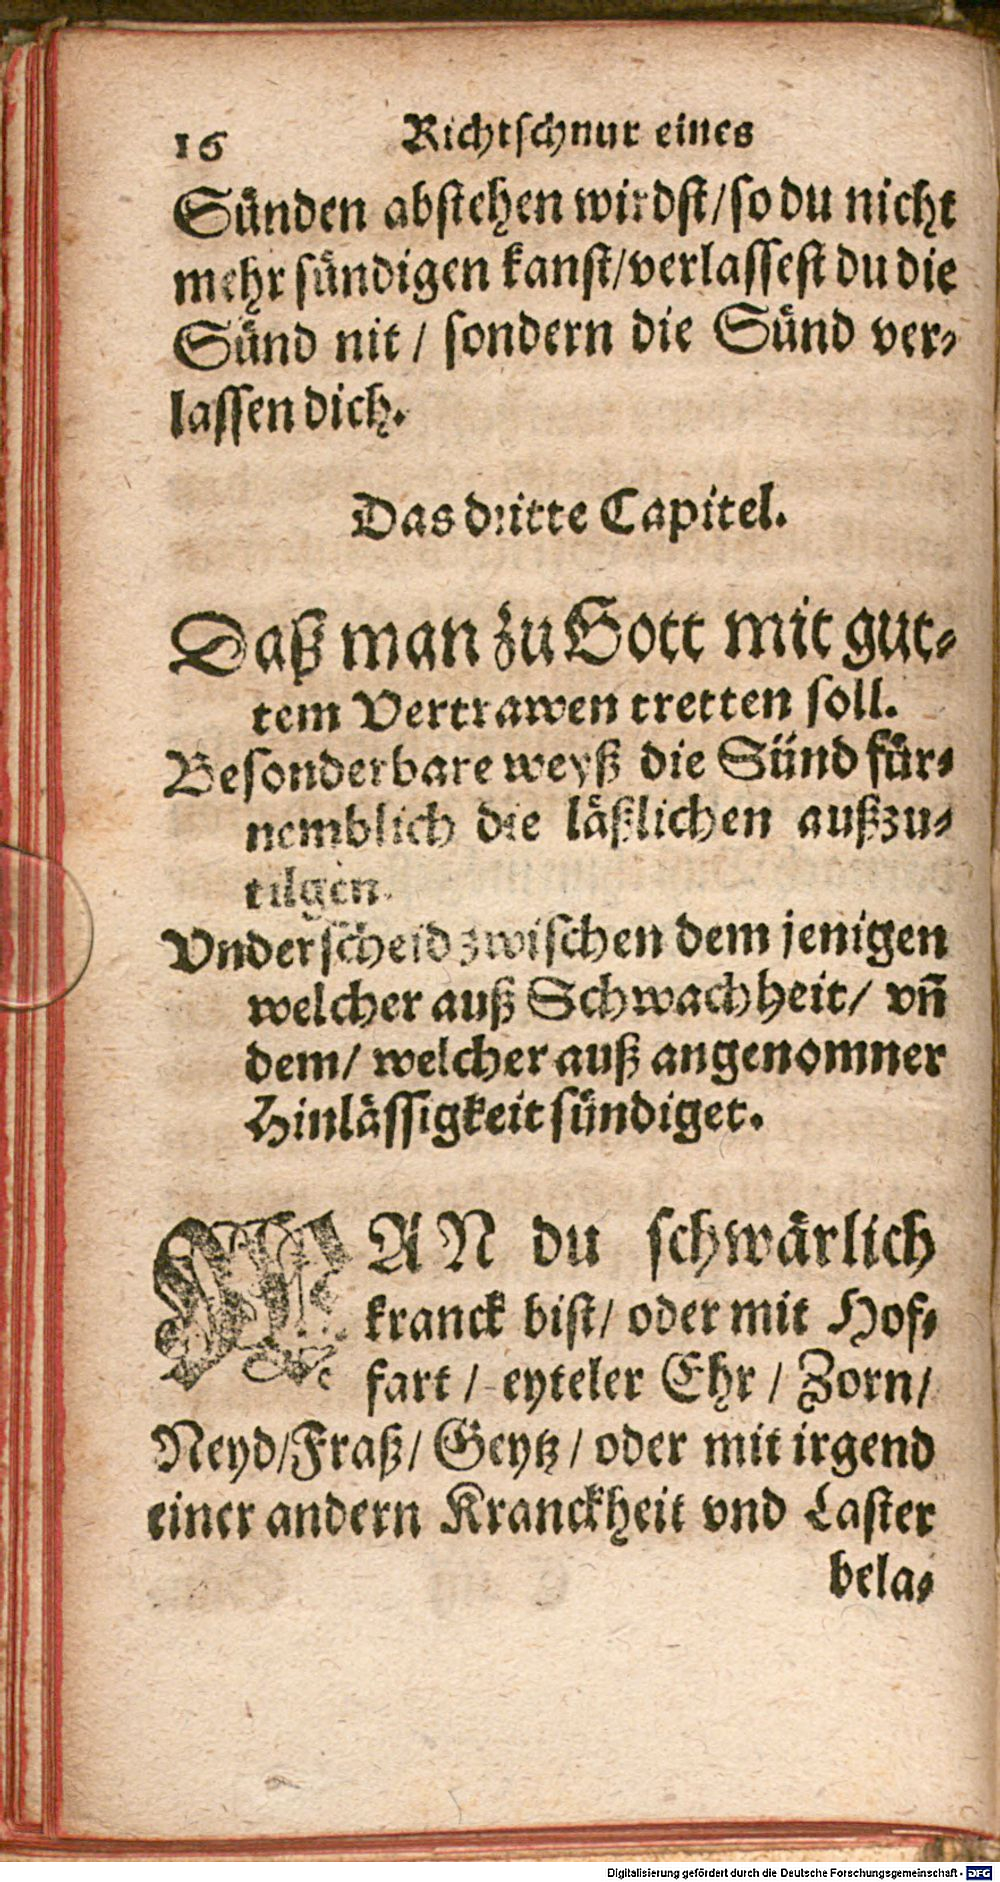 16 Richtschnur eines
Sünden abstehen wirdst/so du nicht
mehr sündigen kanst/verlassest du die
Sünd nit / sondern die Sünd ver-
lassen dich.
Das dritte Capitel.
Daß man zu Gott mit gut-
tem Vertrawen tretten soll.
Besonderbare weyß die Sünd für-
nemblich die läßlichen außzu-
tilgen.
Vnderscheid zwischen dem jenigen
welcher auß Schwachheit/ vñ
dem/ welcher auß angenomner
Hinlässigkeit sündiget.
WAN du schwärlich
kranck bist/ oder mit Hof-
fart / eyteler Ehr / Zorn/
Neyd/Fraß/ Geytz / oder mit irgend
einer andern Kranckheit vnd Laster
bela-
Digitalisierung gefördert durch die Deutsche Forschungsgemeinschaft - DFG